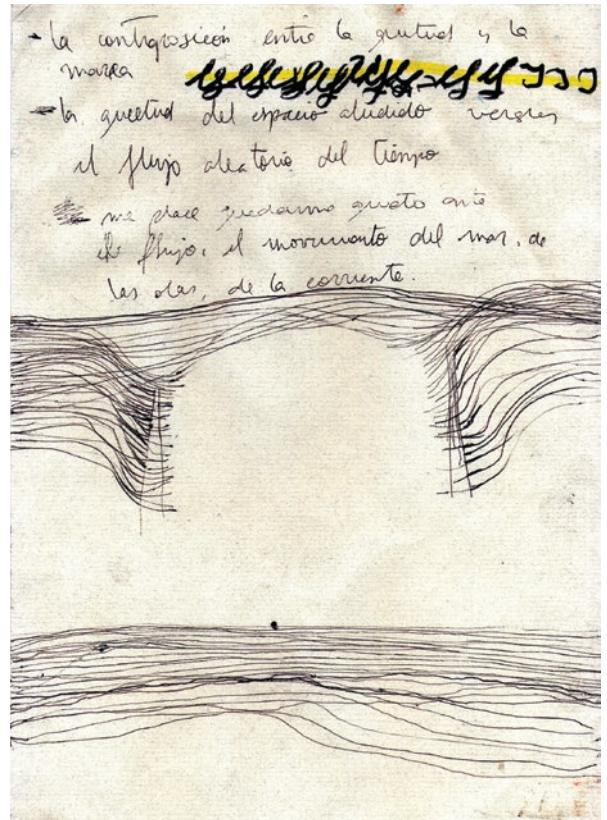 - la contraposición entre la quietud y la
marea
- la quietud del espacio aludido versus
el flujo aleatorio del tiempo
me place quedarme quieto ante
el flujo, el movimiento del mar, de
las olas, de la corriente.